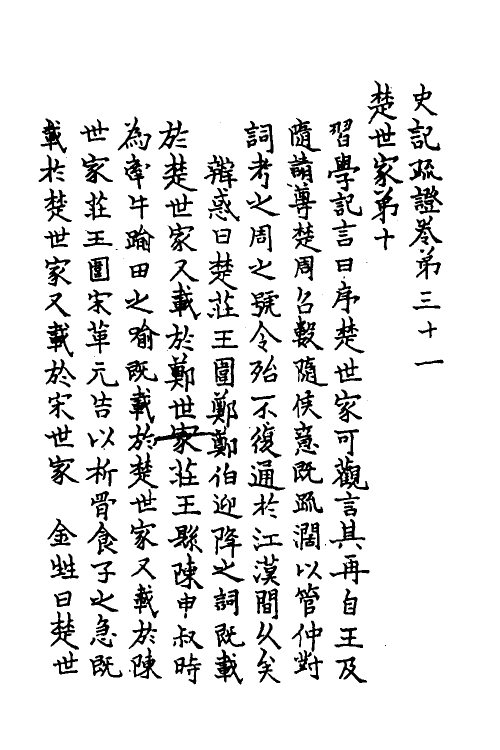 史記疏證卷第三十一
楚世家第十
習學記言曰序楚世家可觀言其再自王及
隨請尊楚周召數隨侯意既疏濶以管仲對
詞考之周之號令殆不復通於江漢間久矣
辯惑曰楚莊王圍鄭鄭伯迎降之詞既載
於楚世家又載於鄭世家莊王縣陳申叔時
為牽牛踰田之喻既載於楚世家又載於陳
世家莊王圍宋華元告以析骨食子之急既
載於楚世家又載於宋世家　金甡曰楚世